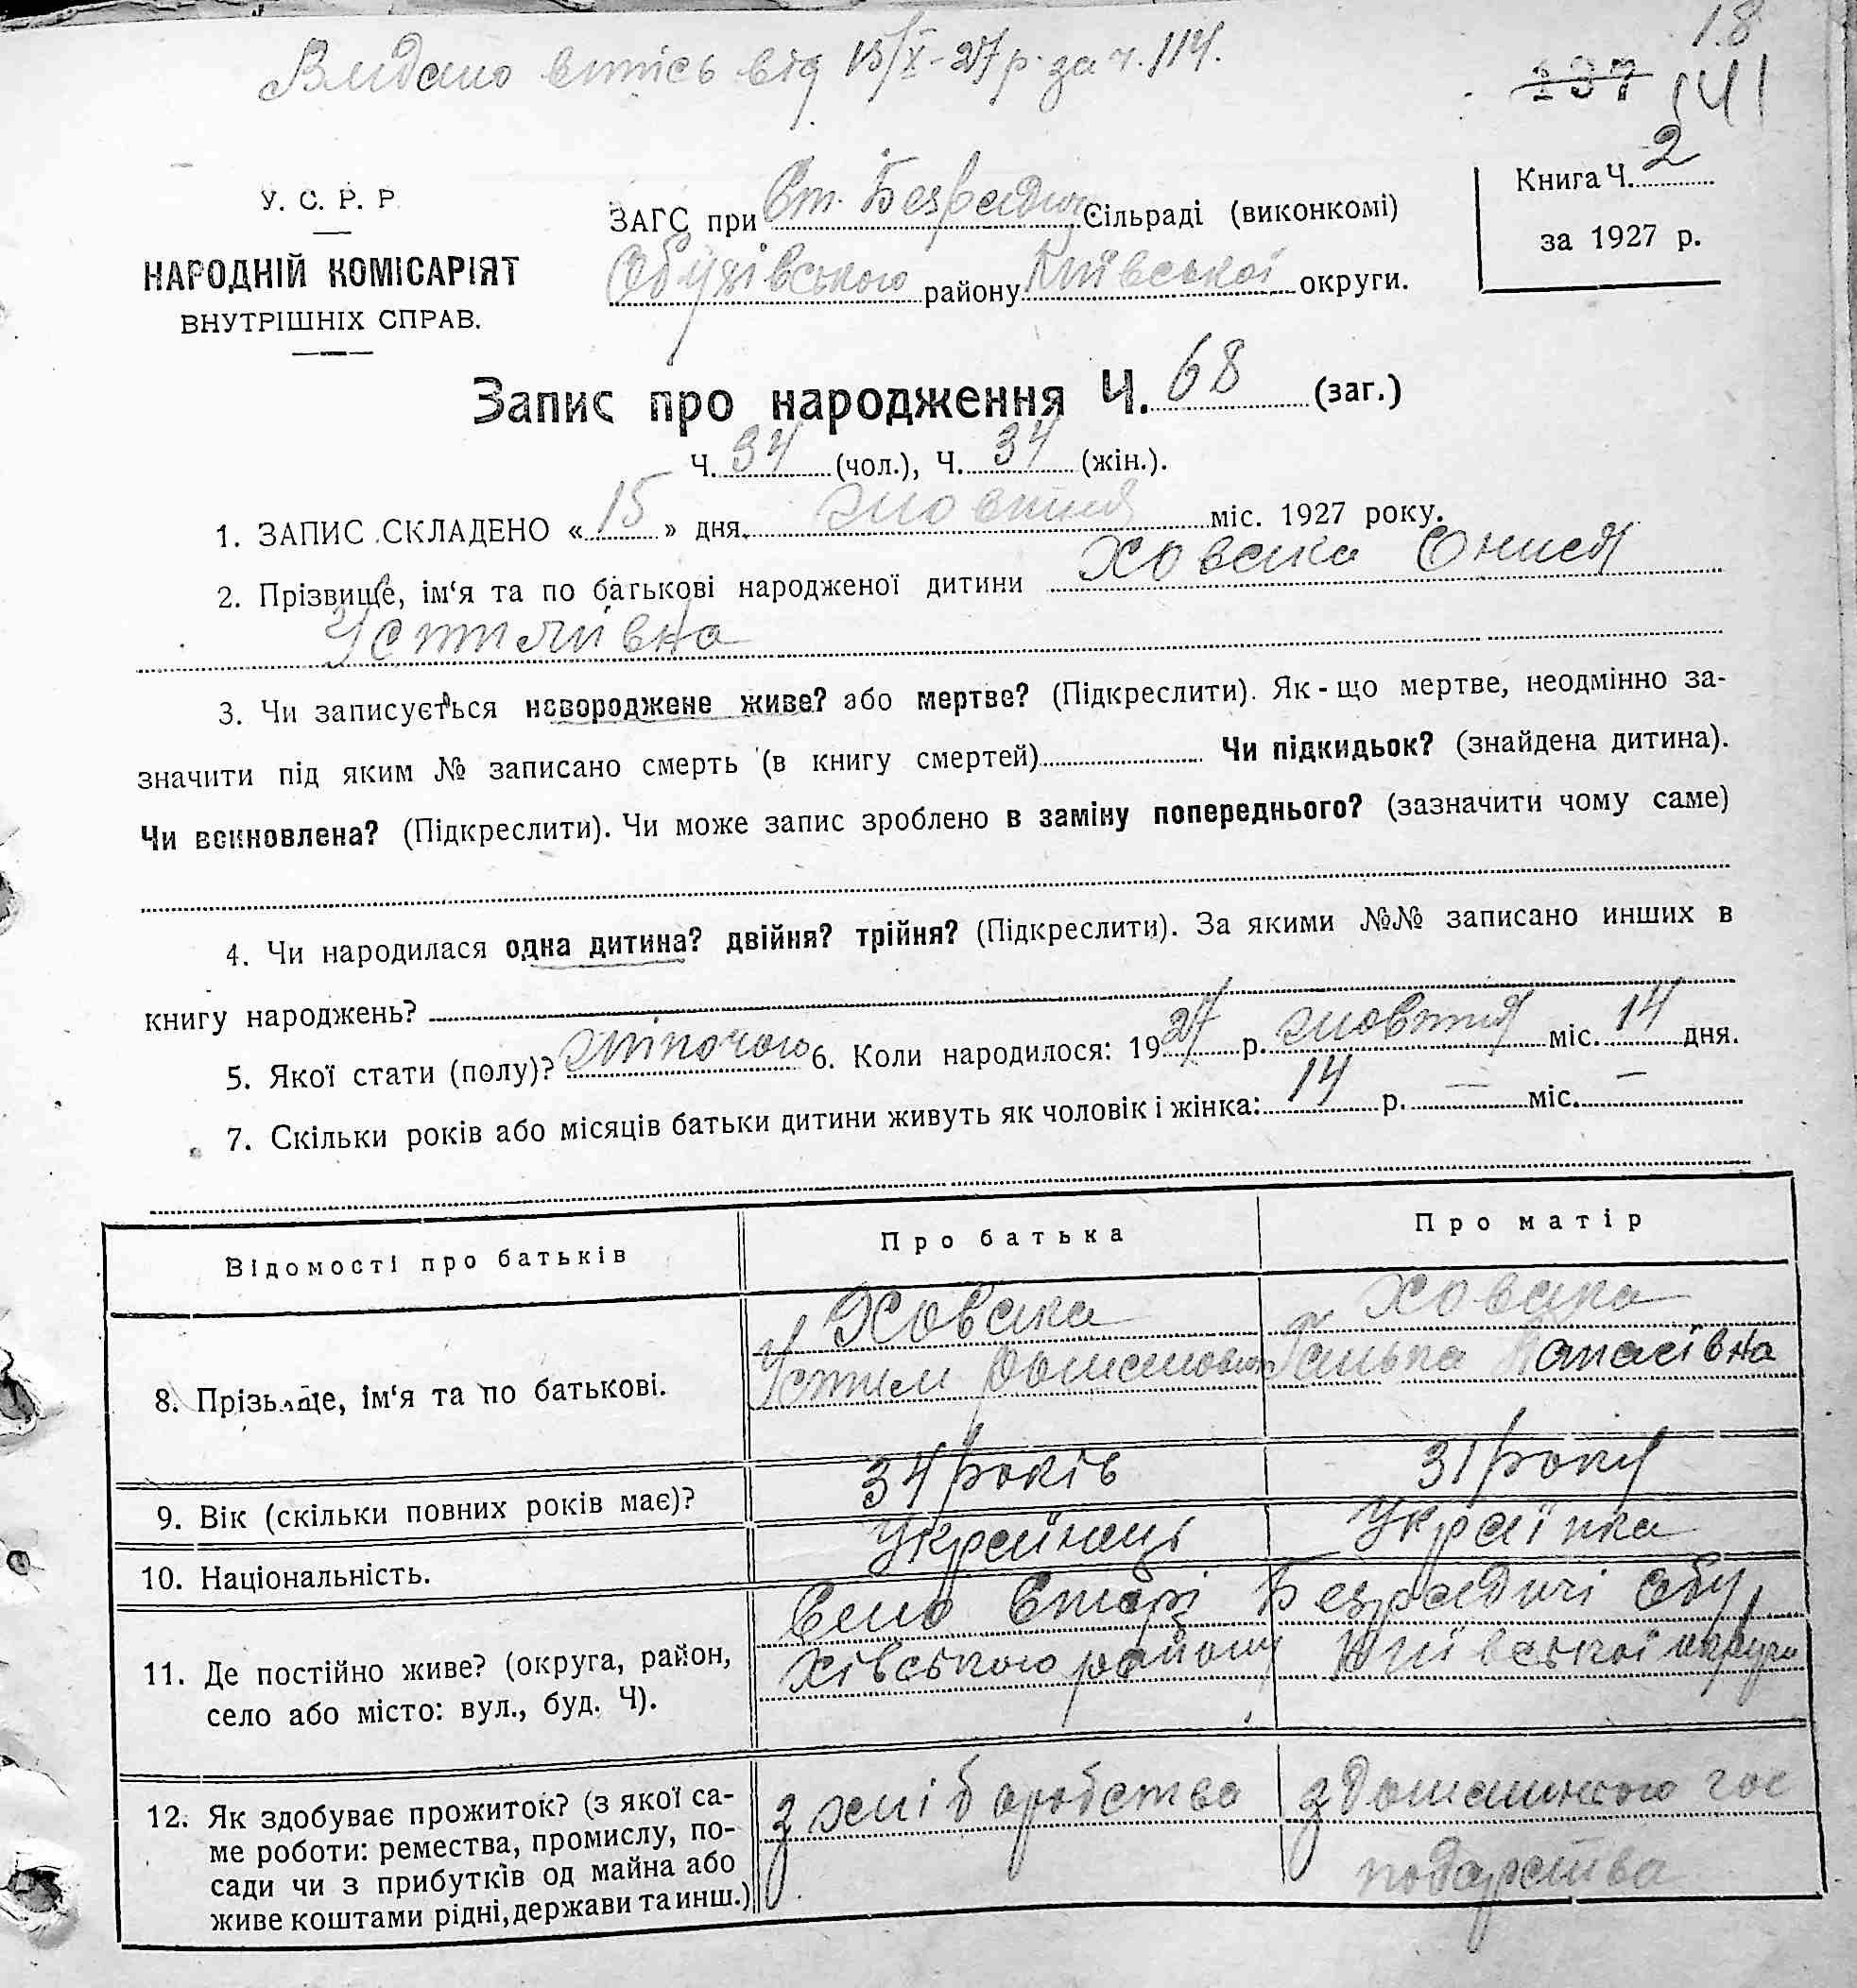 Видано витісь від 15/X-27 р. за ч. 114.
18
137 141
У. С. Р. Р
НАРОДНІЙ КОМІСАРІЯТ
ВНУТРІШНІХ СПРАВ.
ЗАГС при Ст. Безрадиц Сільраді (виконкомі)
Обухівського району Київської округи.
Книга Ч. 2
за 1927 р.
Запис про народження Ч. 68 (заг.)
Ч. 34 (чол.), Ч. 34 (жін.).
1. ЗАПИС СКЛАДЕНО « 15 » дня жовтня міс. 1927 року.
2. Прізвище, ім‘я та по батькові народженої дитини Ховака Онися
Устимівна
3. Чи записується новороджене живе? або мертве? (Підкреслити). Як-що мертве, неодмінно за-
значити під яким № записано смерть (в книгу смертей) Чи підкидьок? (знайдена дитина).
Чи вспновлена? (Підкреслити). Чи може запис зроблено в заміну попереднього? (зазначити чому саме)
4. Чи народилася одна дитина? двійня? трійня? (Підкреслити). За якими №№ записано инших в
книгу народжень?
5. Якої стати (полу)? жіночого 6. Коли народилося: 1927 р. жовтня міс. 14 дня.
7. Скільки років або місяців батьки дитини живуть як чоловік і жінка: 14 р. — міс. —
Відомості про батьків Про батька Про матір
8. Прізвище, ім‘я та по батькові.
Ховака
Устим Романович
Ховака
Ганька Панасівна
9. Вік (скільки повних років має)? 34 років 31 року
10. Національність. Українець Українка
11. Де постійно живе? (округа, район,
село або місто: вул., буд. Ч).
Село Старі Безрадичі Обу
хівського району Київської округи
12. Як здобуває прожиток? (з якої са-
ме роботи: ремества, промислу, по-
сади чи з прибутків од майна або
живе коштами рідні, держави та инш.)
з хліборобства
з домашнього гос
подарства